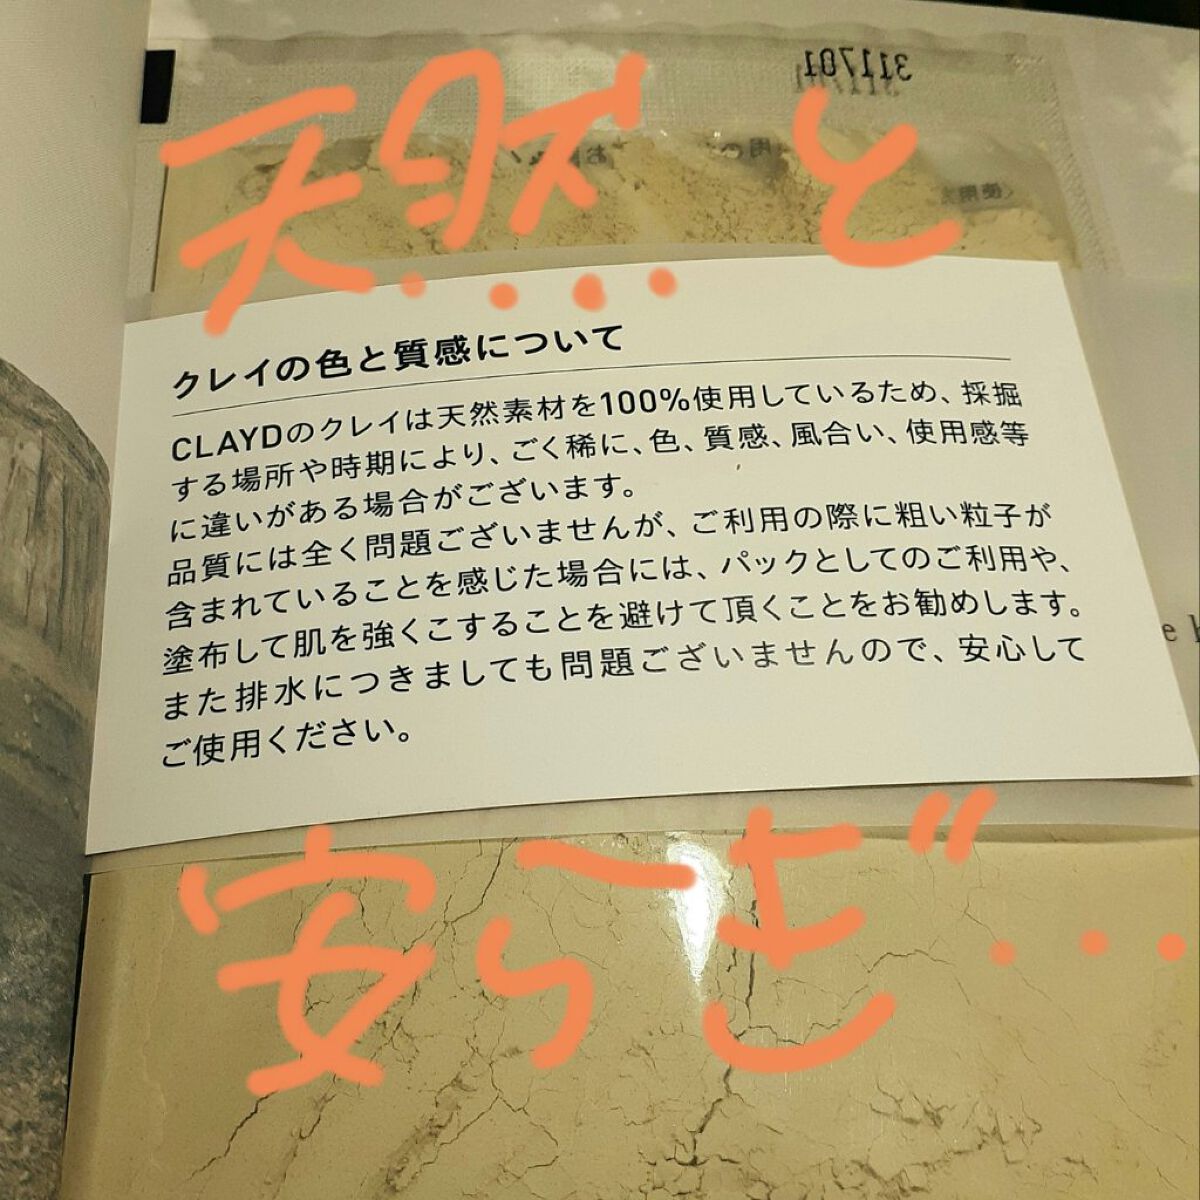 311701
天然と
クレイの色と質感について
CLAYDのクレイは天然素材を100%使用しているため、採掘
する場所や時期により、ごく稀に、色、質感、風合い、使用感等
に違いがある場合がございます。
品質には全く問題ございませんが、ご利用の際に粗い粒子が
含まれていることを感じた場合には、パックとしてのご利用や、
塗布して肌を強くこすることを避けて頂くことをお勧めします。
また排水につきましても問題ございませんので、安心して
ご使用ください。
安らぎ...